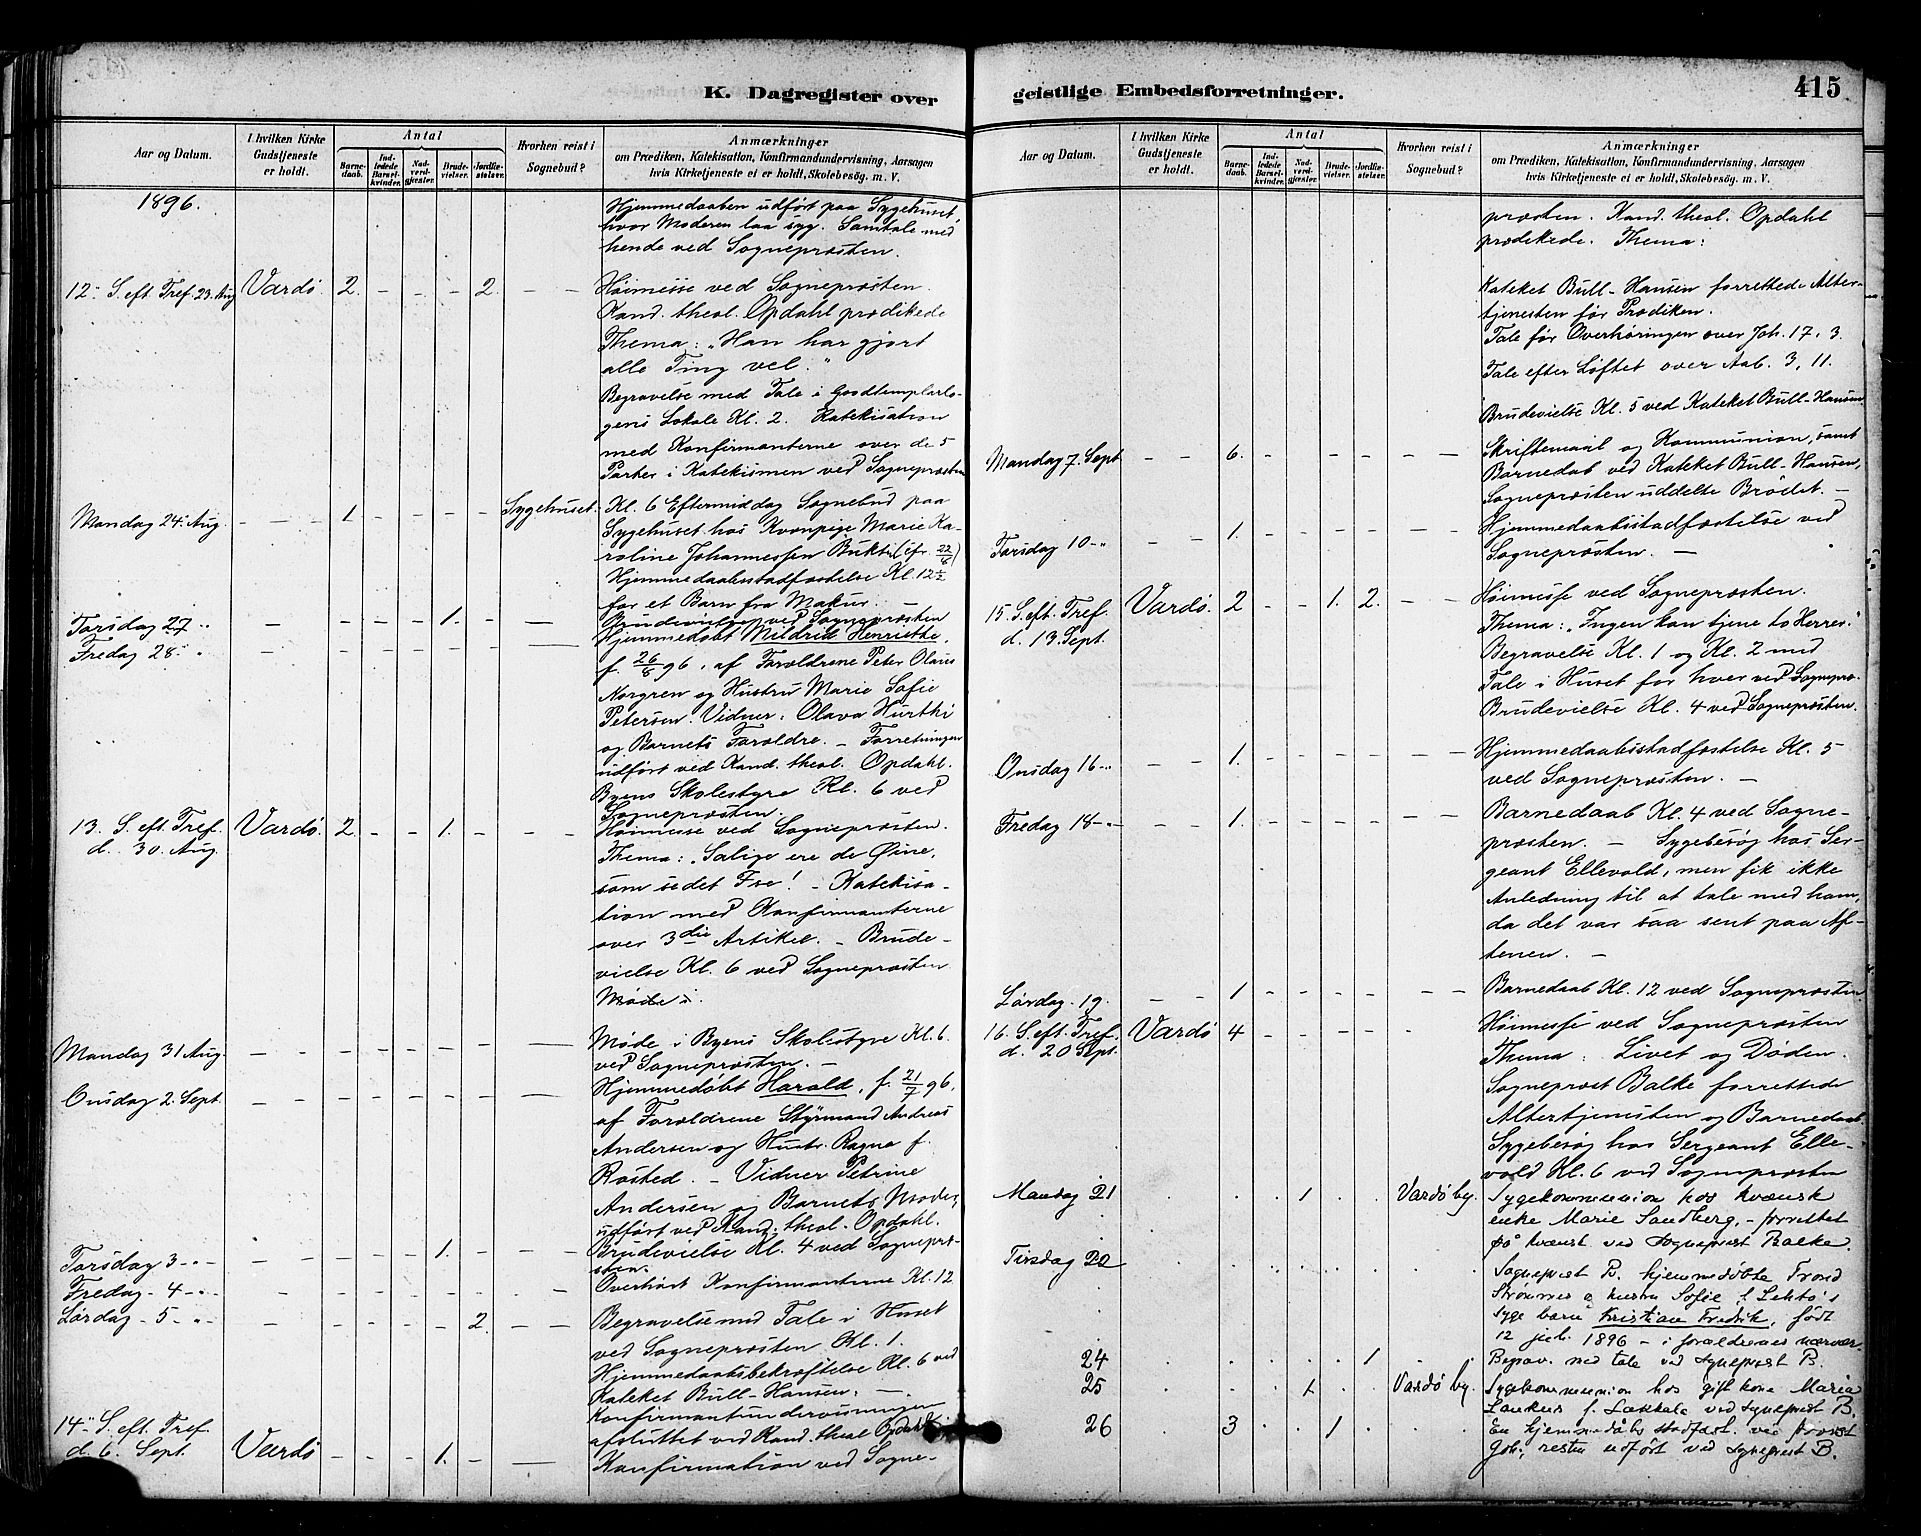 K. Dagregister over
Aar og Datum.
I hvilken Kirke Gudstjeneste er holdt.
Antal
Barnedaab.
Indledede Barselkvinder.
Nadverdgjester.
Brudevielser.
Jordfæstelser.
Hvorhen reist i Sognebud?
Anmærkninger
om Prædiken, Katekisation, Konfirmandundervisning, Aarsagen
hvis Kirketjeneste ei er holdt, Skolebesøg. m. V.
1896.
Hjemmedaaben udført paa Sygehuset,
hvor Moderen laa syg. Samtale med
hende ved Sognepræsten.
12te S. eft. Tref. 23. Aug Vardø. 2. - - - 2. - - Høimesse ved Sognepræsten.
Kand. theol. Opdahl prædikede
Thema: "Han har gjort
alle Ting vel."
Begravelse med Tale i Goodtemplarlo-
gens Lokale Kl. 2. Katekisation
med Konfirmanterne over de 5
Parter i Katekismen ved Sognepræsten
Mandag 24. Aug. - - - 1. - - - - Sygehuset. Kl. 6 Eftermiddag Sognebud paa
Sygehuset hos Kvenpige Marie Ka-
roline Johannessen Bukti (cfr. 22/8)
Hjemmedaabsstadfæstelse Kl. 12½
for et Barn fra Makur. -
Torsdag 27 - - - - - 1. - - Brudevielse ved Sognepræsten
Fredag 28 - - - - - - - Hjemmedøbt Mildrid Henriette,
f. 26/8 96, af Forældrene Peter Olaus
Norgren og Hustru Marie Sofie
Petersen. Vidner: Olava Hurthi
og Barnets Forældre. - Forretningen
udført ved Kand. theol. Opdahl.
Byens Skolestyre Kl. 6 ved
Sognepræsten.
13. S. eft. Tref. Vardø. 2. - - 1. - - - Høimesse ved Sognepræsten.
d. 30. Aug.
Thema: "Salige ere de Øine,
som se det I se! - Katekisa-
tion med Konfirmanterne
over 3die Artikel. - Brude-
vielse Kl. 6 ved Sognepræsten
Møde i.
Mandag 31 Aug. - - - - - - - Møde i Byens Skolestyre Kl. 6.
ved Sognepræsten. -
Onsdag 2. Sept. - - - - - - - Hjemmedøbt Harald, f. 21/7 96,
af Forældrene Styrmand Andreas
Andersen og Hustr. Ragna f.
Rosted. - Vidner Petrine
Andersen og Barnets Moder,
udført ved Kand. theol. Opdahl.
Torsdag 3 - - - - - 1. - - Brudevielse Kl. 4 ved Sognepræ-
sten.
Fredag - 4 - - - - - - - Overhørt Konfirmanterne Kl. 12
Lørdag - 5 - - - - - - 2. - - Begravelse med Tale i Huset
ved Sognepræsten Kl. 1.
Hjemmedaabsbekræftelse Kl. 6 ved
Kateket Bull-Hansen. -
Konfirmantundervisningen
afsluttet ved Kand. theol Opdahl
14de S. eft. Tref.
d. 6. Sept. Vardø - - - 1. - - Konfirmation ved Sogne-
geistlige Embedsforretninger.
415
Aar og Datum.
I hvilken Kirke Gudstjeneste er holdt.
Antal
Barnedaab.
Indledede Barselkvinder.
Nadverdgjester.
Brudevielser.
Jordfæstelser.
Hvorhen reist i Sognebud?
Anmærkninger
om Prædiken, Katekisation, Konfirmandundervisning, Aarsagen
hvis Kirketjeneste ei er holdt, Skolebesøg. m. V.
præsten. Kand. theol. Opdahl
prædikede. Thema:
Kateket Bull-Hansen forrettede Alter-
tjenesten før Prædiken.
Tale før Overhøringen over Joh. 17, 3.
Tale efter Løftet over Aab. 3, 11.
Brudevielse Kl. 5 ved Kateket Bull-Hansen
Mandag 7. Sept - - 6. - - - - - - Skriftemaal og Kommunion, samt
Barnedab ved Kateket Bull-Hansen,
Sognepræsten uddelte Brødet. -
Torsdag 10 - - - 1. - - - - - - Hjemmedaabsstadfæstelse ved
Sognepræsten. -
15. S. eft. Tref. Vardø. 2 - - 1. 2. - - Høimesse ved Sognepræsten.
d. 13. Sept.
Thema: "Ingen kan tjene to Herrer."
Begravelse Kl. 1 og Kl. 2 med
Tale i Huset for hver ved Sognepr.
Brudevielse Kl. 4 ved Sognepræsten.
Onsdag 16 - - - 1. - - - - - - Hjemmedaabsstadfæstelse Kl. 5
ved Sognepræsten. -
Fredag 18 - - - 1. - - - - - - Barnedaab Kl. 4 ved Sogne-
præsten. - Sygebesøg hos Ser-
geant Ellevold, men fik ikke
Anledning til at tale med ham,
da det var saa sent paa Af-
tenen. -
Lørdag - 19. - - 1 - - - - - - Barnedaab Kl. 12 ved Sognepræsten
16. S. eft. Tref. Vardø 4 - - - - - - Høimesse ved Sognepræsten
d. 20 Sept.
Thema: Livet og Døden.
Sogneprest Balke forrettede
Altertjenesten og Barnedaab.
Sygebesøg hos Sergeant Elle-
vold Kl. 6 ved Sognepræsten
Mandag 21 . . 1 . . Vardø by. Sygekommunion hos kvænsk
enke Marie Sandberg, - forrettet
på kvænsk ved Sogneprest Balke.
Tirsdag 22 . . . . . . Sogneprest B. hjemmedøbte Trond
Strømnes og hustru Sofie f. Lehto's
syge barn Kristian Fredrik, født
12 juli 1896 - i forældrenes nærvær.
24 . . . . . 1 . Begrav. med tale ved sogneprest B.
25 . . . 1 . . Vardø by. Sygekommunion hos gift kone Maria
Laukus f. Lakkala ved sogneprest B.
26 3 . . 1 . . En hjemmedåbs stadfæst. ved provst
Gjøv; resten udført ved sogneprest B.